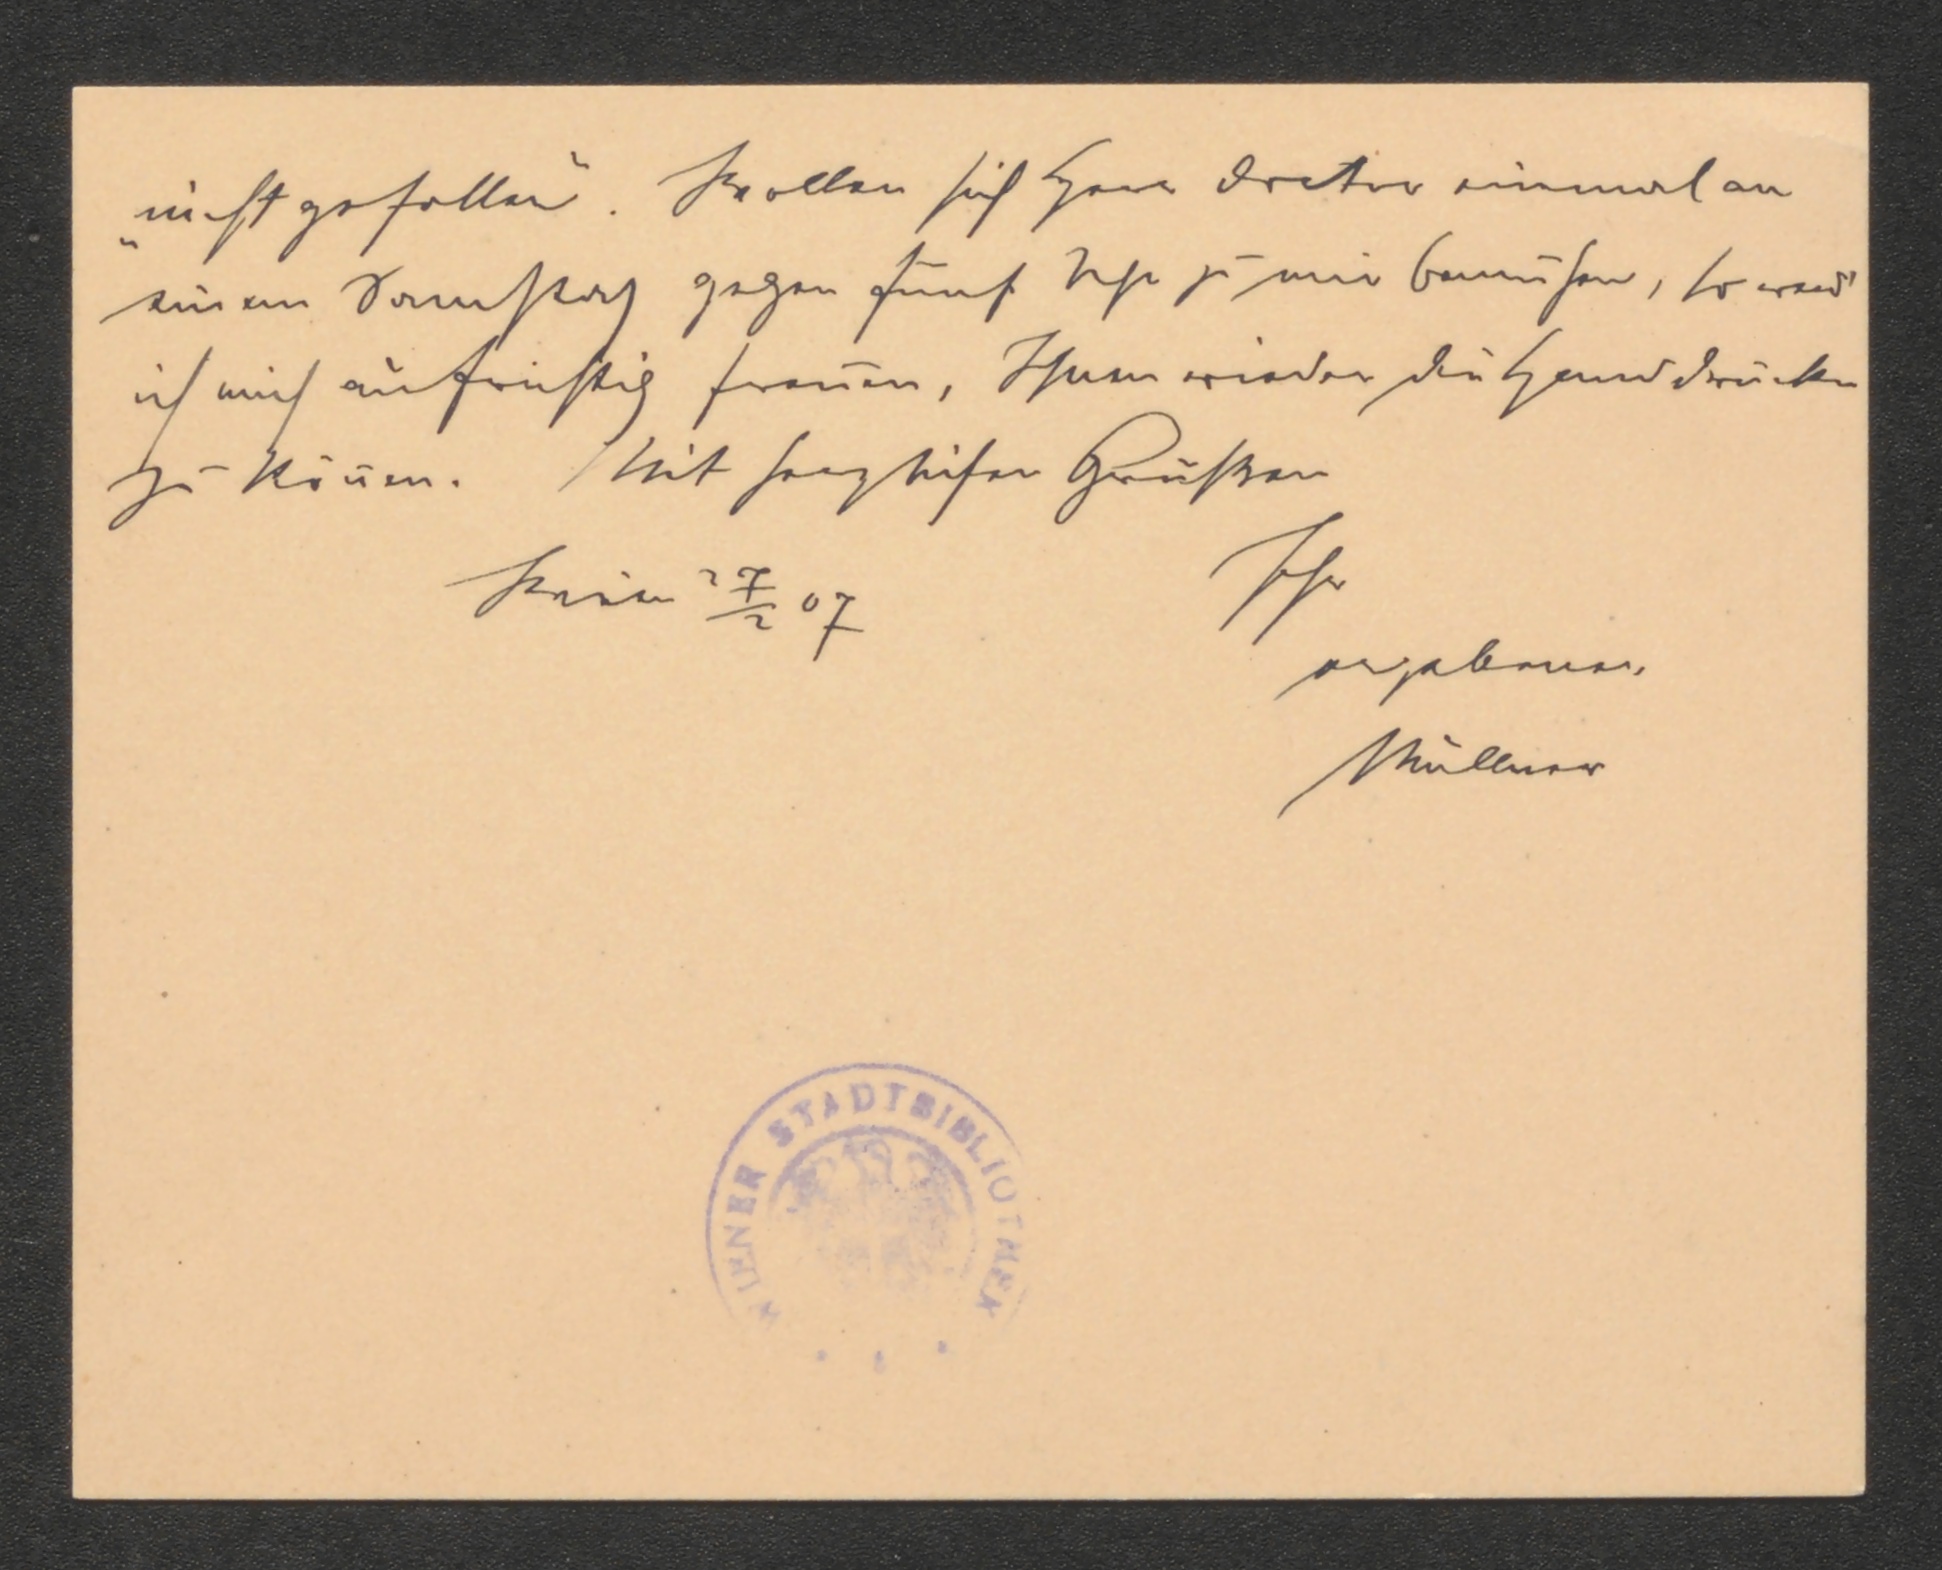 „nicht gefallen“. Wollen sich Herr Doctor einmal an
einem Samstag gegen fünf Uhr zu mir bemühen, so werd'
ich mich aufrichtig freuen, Ihnen wieder die Hand drücken
zu können. Mit herzlichen Grüßen
Wien 27/2 07
Ihr
ergebener
Müllner
WIENER STADTBIBLIOTHEK